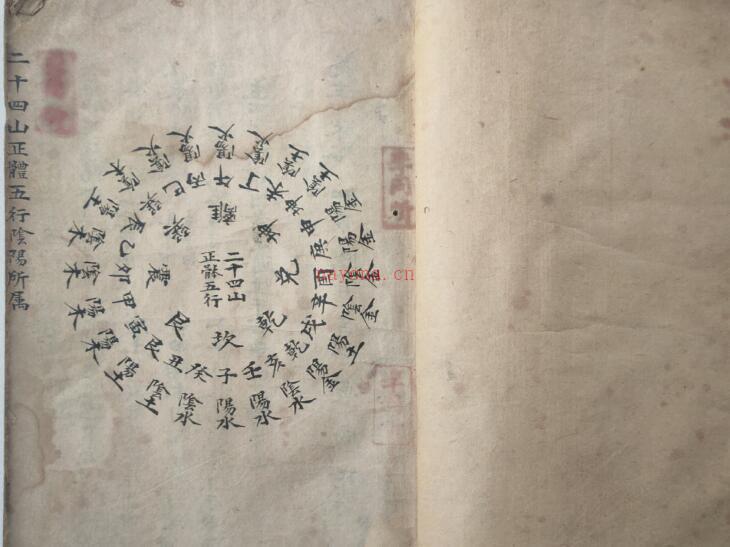 二十四山正體五行陰陽所属
二十四山
正骵五行
離
坤
兌
乾
坎
艮
震
巽
午 陽火
丁 陰火
未 陰土
坤 陰土
申 陽金
庚 陽金
酉 陰金
辛 陰金
戌 陽土
乾 陽金
亥 陰水
壬 陽水
子 陽水
癸 陰水
丑 陰土
艮 陽土
寅 陽木
甲 陽木
卯 陰木
乙 陰木
辰 陽土
巽 陰木
巳 陰火
丙 陽火
nayona.cn